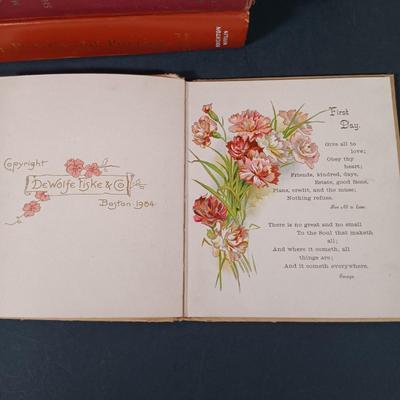 Copyright
DeWolfe Fiske & Co.
Boston. 1904.
First
Day.
Give all to
love;
Obey thy
heart;
Friends, kindred, days,
Estate, good fame,
Plans, credit, and the muse;
Nothing refuse.
Give All to Love.
There is no great and no small
To the Soul that maketh
all;
And where it cometh, all
things are;
And it cometh everywhere.